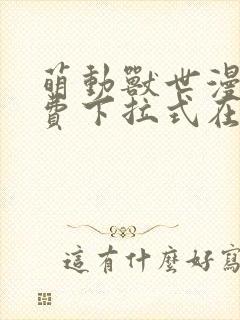 萌動獸世漫
費下拉式在
這有什麼好寫